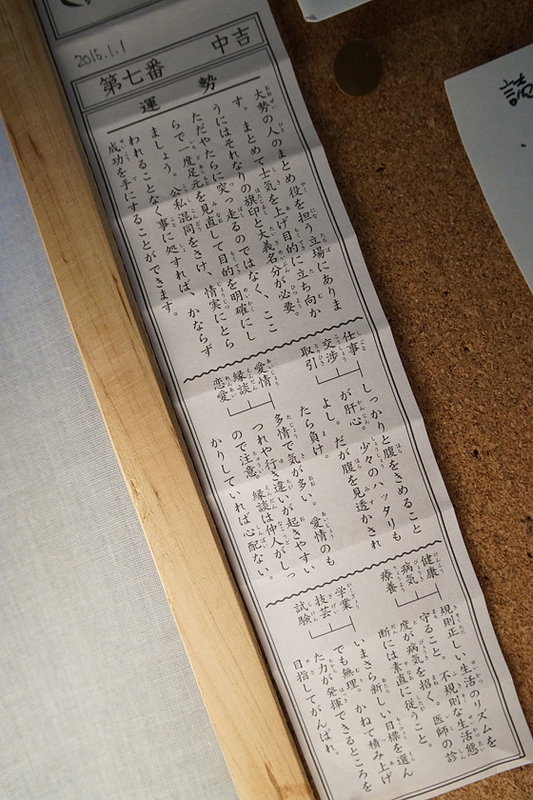 2015.1.1
第七番 中吉
運勢
大勢の人のまとめ役を担う立場にありま
す。まとめて士気を上げ目的に立ち向か
うにはそれなりの旗印と大義名分が必要。
ただやたらに突っ走るのではなく、ここ
らで一度足元を見直して目的を明確にし
ましょう。公私混同をさけ、情実にとら
われることなく事に処すれば、かならず
成功を手にすることができます。
仕事
交渉
取引
しっかりと腹をきめること
が肝心。少々のハッタリも
よし。だが腹を見透かされ
たら負け。
愛情
縁談
恋愛
多情で気が多い。愛情のも
つれや行き違いが起きやすい
ので注意。縁談は仲人がしっ
かりしていれば心配ない。
健康
病気
療養
規則正しい生活のリズムを
守ること。不規則な生活態
度が病気を招く。医師の診
断には素直に従うこと。
学業
技芸
試験
いまさら新しい目標を選ん
でも無理。かねて積み上げ
た力が発揮できるところを
目指してがんばれ。